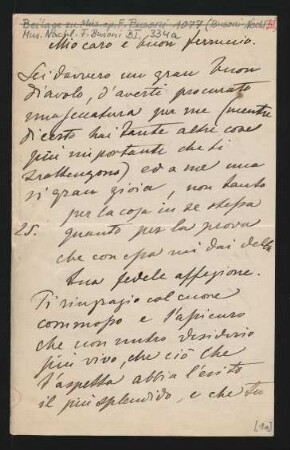 Beilage zu Mus. ep. F. Busoni 1077 (Busoni-Nachl.
Mus. Nachl. F. Busoni B I, 334a
Mio caro e buon Ferruccio.
Sei davvero un gran buon
diavolo, d'averti procurato
una seccatura per me (mentre
di certo hai tante altre cose
più importante che ti
trattengono) ed a me una
sì gran gioia, non tanto
per la cosa in se stessa
25.
quanto per la prova
che con essa mi dai della
tua fedele affezione.
Ti ringrazio col cuore
commosso e t'assicuro
che non nutro desiderio
più vivo, che ciò che
t'aspetta abbia l'esito
il più splendido, e che tu
[1a]